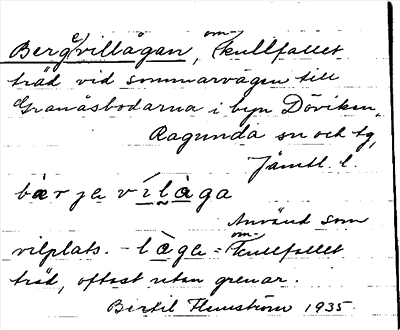 Bergevillågan, omkullfallet
träd vid sommarvägen till
Granåsbodarna i byn Döviken,
Ragunda sn och tg,
Jämtl. l.
bàrje vílàga
Använd som
vilplats. - låga = omkullfallet
träd, oftast utan grenar.
Bertil Flemström 1935.